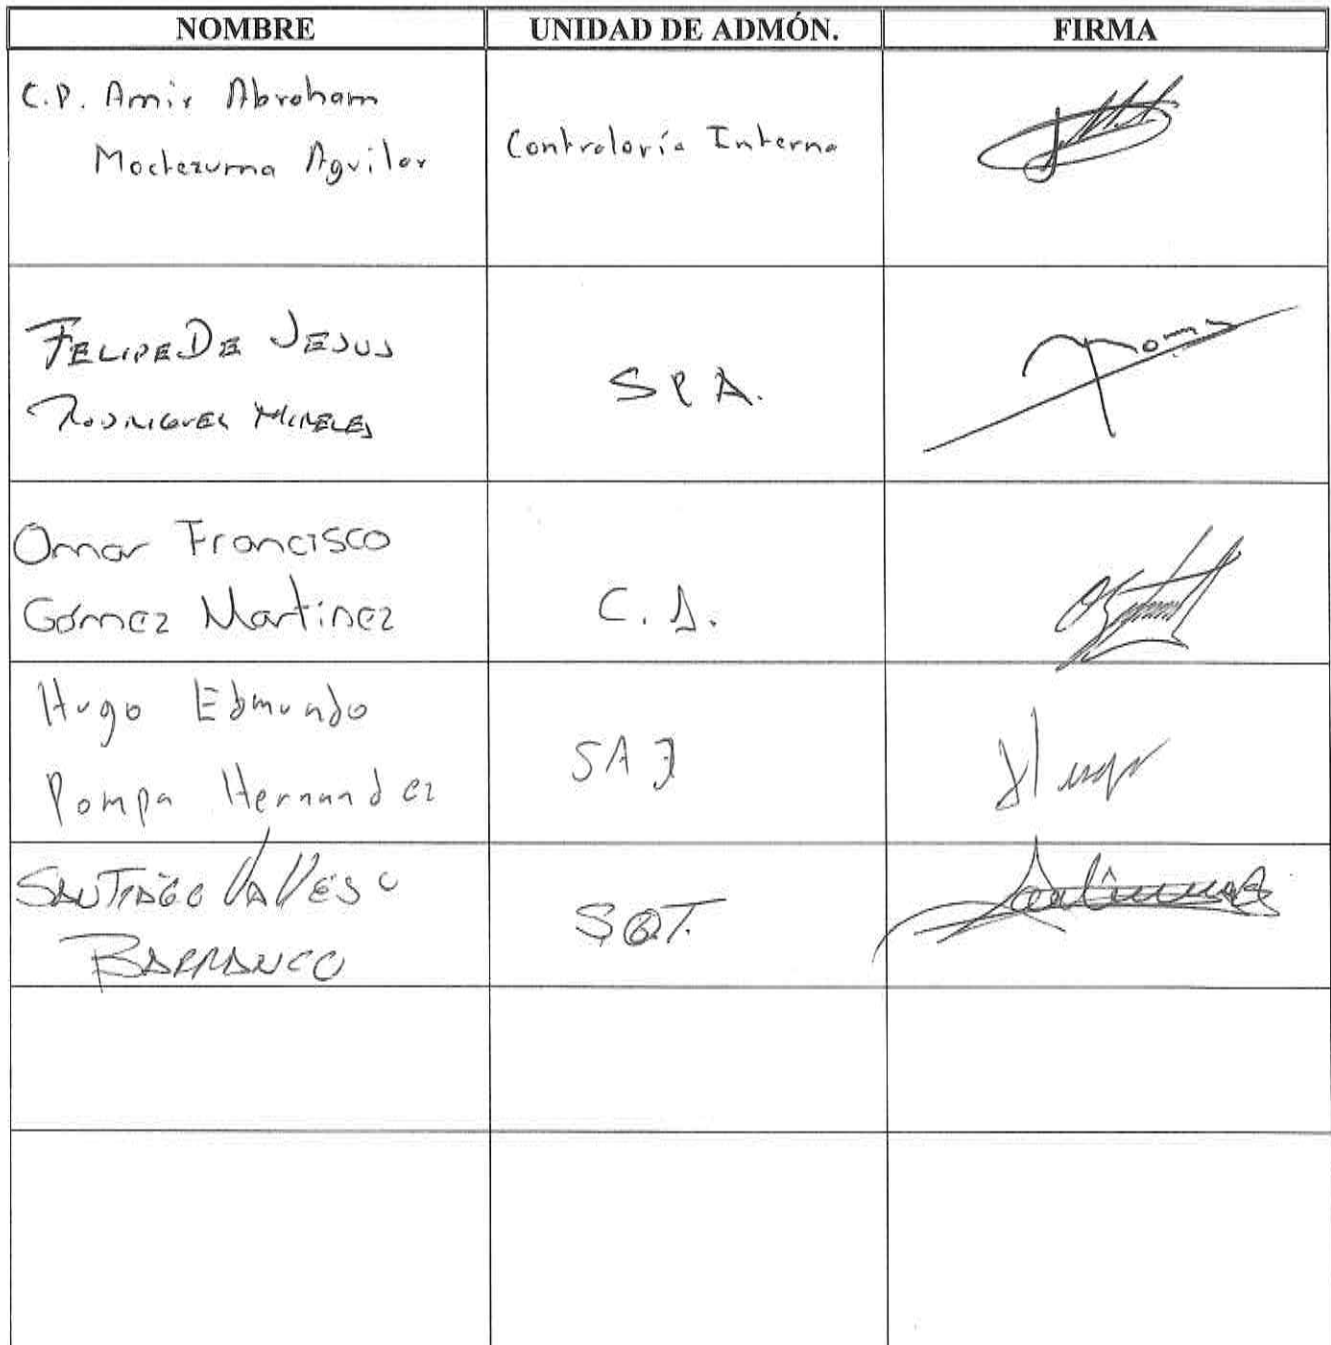 NOMBRE UNIDAD DE ADMÓN. FIRMA
C.P. Amir Abraham
Moctezuma Aguilar
Controloría Interna
FELIPE DE JESUS
RODRIGUEZ MIRELES
S P A.
Omar Francisco
Gómez Martínez
C. A.
Hugo Edmundo
Pompa Hernandez
SAJ
Hugo
SANTIAGO
BARRANCO
S.O.T.